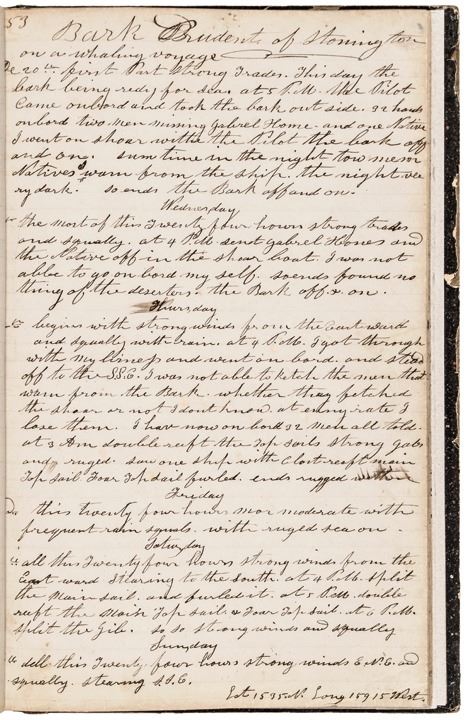 53
Bark Prudent of Stonington
on a whaling voyage
De 20th first Part strong Trades. This day the
bark being redy for sea. at 5 P.M. the Pilot
Came onbord and took the bark out side. 32 hands
onbord two men mising Gabrel Home and one Native
I went on shoar withe the Pilot the bark off
and on. sum time in the night tow men
Natives swam from the ship. the night ve
ry dark. so ends the Bark off and on.
Wednesday
the most of this Twenty four hours strong trades
and squally. at 4 P.M. sent Gabrel Homes and
the Native off in the shoar boat. I was not
able to go on bord my self. so ends found no
thing of the deserters. the Bark off & on.
Thursday
begins with strong winds from the East ward
and squally with rain. at 4 P.M. I got through
with my and went on bord. and steed
off to the S.S.E. I was not able to ketch the men that
swam from the Bark. whether they fetched
the shoar or not I dont know. at enny rate I
lose them. I hav now on bord 32 men all told.
at 3 Am double reaft the Top sails strong gals
and ruged. saw one ship with Clost reaft main
Top sail Foar Top sail furled. ends rugged
Friday
this twenty four hours mor moderate with
frequent rain squals. with ruged sea on
Saturday
all this Twenty four hours strong winds from the
East ward Stearing to the south. at 4 P.M. split
the Main sail. and furled it. at 5 P.M. double
reaft the Main Top sail. & Foar Top sail. at 6 P.M.
split the Gib. so so strong winds and squally
Sunday
all this Twenty four hours strong winds E.N.E. and
squally. stearing S.S.E.
Lat 15 35 N. Long 159 15 West.